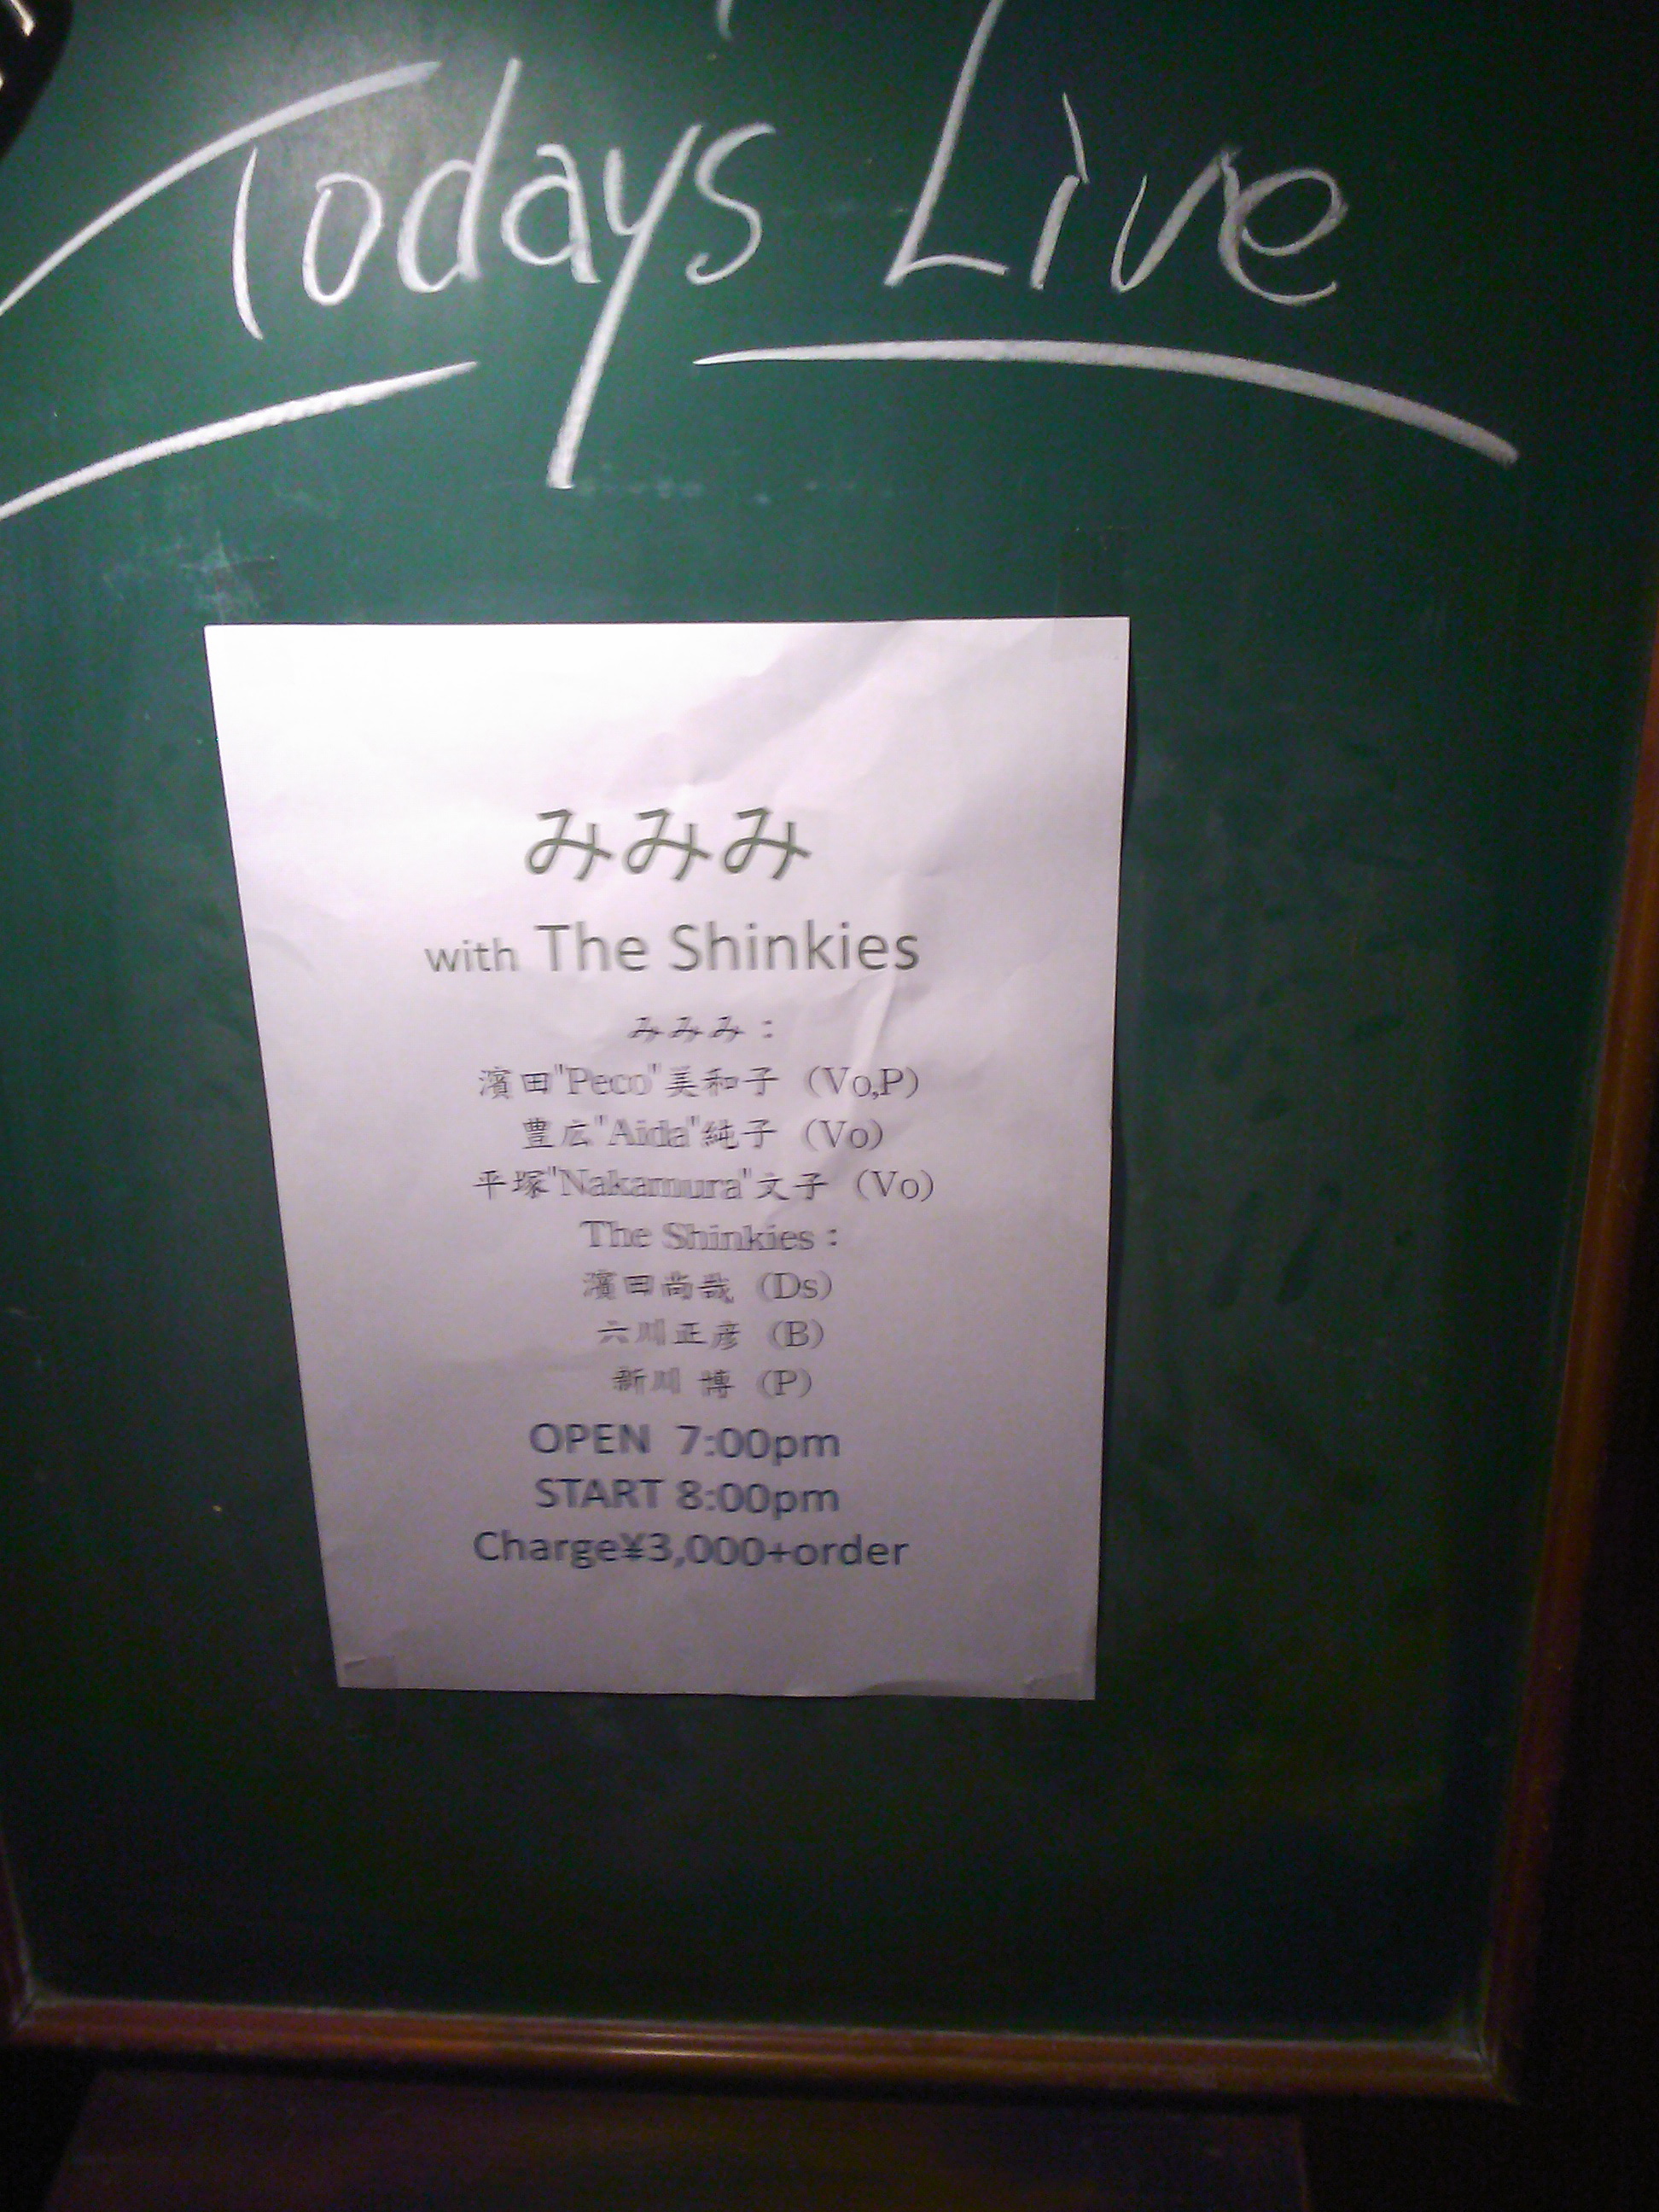 Today's Live
みみみ
with The Shinkies
みみみ：
濱田"Peco"美和子（Vo,P）
豊広"Aida"純子（Vo）
平塚"Nakamura"文子（Vo）
The Shinkies：
濱田尚哉（Ds）
六川正彦（B）
新川 博（P）
OPEN 7:00pm
START 8:00pm
Charge¥3,000+order